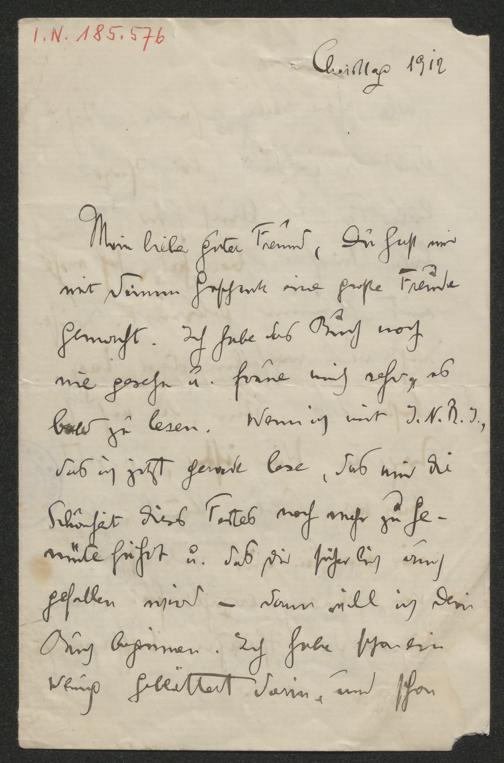 I.N. 185.576
Christtag 1912
Mein lieber guter Freund, Du hast mir
mit Deinem Geschenk eine große Freude
gemacht. Ich habe das Buch noch
nie gesehn u. freue mich sehr, es
bald zu lesen. Wenn ich mit I.N.R.I.,
das ich jetzt gerade lese, das mir die
Schönheit dieses Festes noch mehr zu Ge-
müte führt u. das dir sicherlich auch
gefallen wird – dann will ich Dein
Buch beginnen. Ich habe schon ein
wenig geblättert darin, und schon